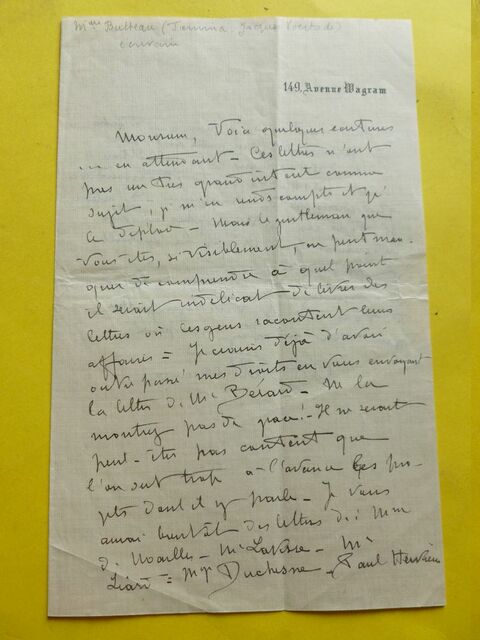 Mme Bulteau (Femina, Jacque Vontade)
écrivain
149, Avenue Wagram
Monsieur, Voici quelques
... en attendant - Ces lettres n'ont
pas un très grand intérêt comme
sujet, je m'en rends compte et je
le déplore - Mais le gentleman que
vous êtes, si visiblement, ne peut man-
quer de comprendre à quel point
il serait indélicat de livrer des
lettres où les gens racontent leurs
affaires = Je crains déjà d'avoir
outre passé mes droits en vous envoyant
la lettre de Mr Bérard - Ne la
montrez pas de grâce! - Il ne serait
peut-être pas content que
l'on sut trop à l'avance les pro-
jets dont il y parle - Je vous
aurai bientôt des lettres de: Mme
de Noailles - Mr Lavisse - Mr
Liard = Mgr Duchesne - Paul Hervieu